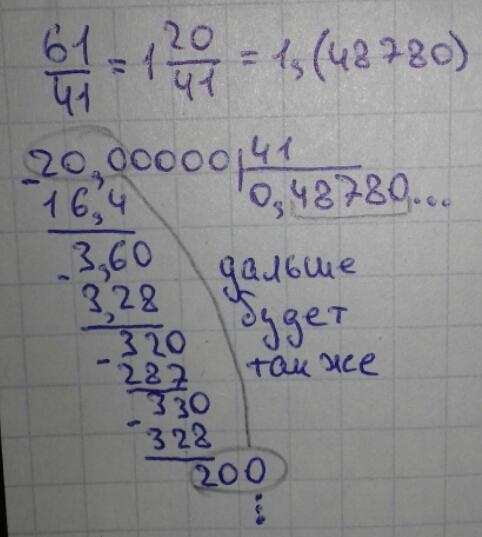 61/41 = 1 20/41 = 1,(48780)
-20,00000 | 41
16,4 0,48780...
-3,60 дальше
3,28 будет
-320 так же
287
-330
328
200
⋮